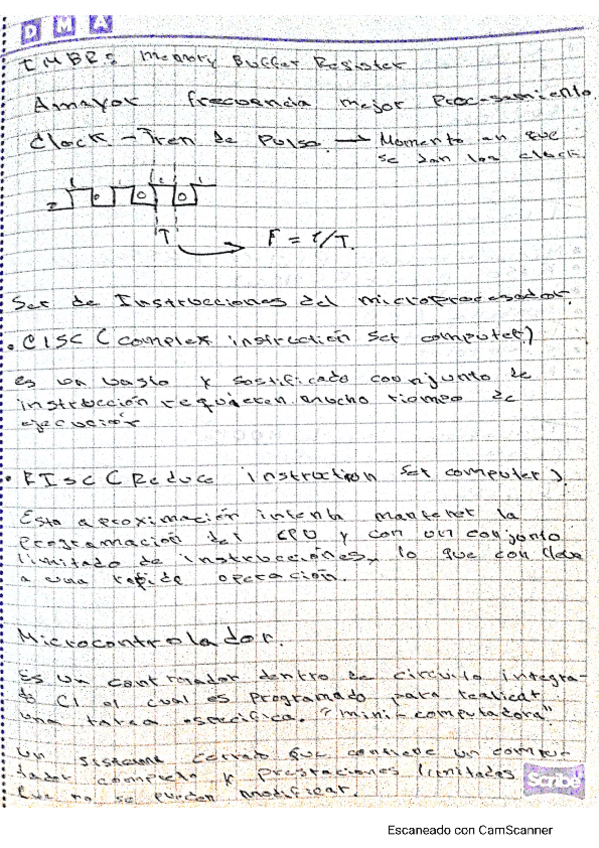 D M A
MBR: Memory Buffer Register
A mayor frecuencia mejor Procesamiento.
Clock - Tren de Pulso. → Momento en que
se dan los clock.
1 1 1 1
0 0 0
T F = 1/T.
Set de Instrucciones del microprocesador.
• CISC (complex instrucción Set computer)
es un vasto y sostificado conjunto de
instrucción requieren mucho tiempo de
ejecución
• RISC (Reduce instruction Set computer).
Esta aproximación intenta mantener la
programación del CPU y con un conjunto
limitado de instrucciones, lo que conlleva
a una rapida operación.
Microcontrolador.
Es un controlador dentro de circuito integra-
do CI el cual es programado para realizar
una tarea especifica. "mini-computadora".
Un sistema cerrado que contiene un compu-
tador completo y prestaciones limitadas
que no se pueden modificar.
Scribe
Escaneado con CamScanner